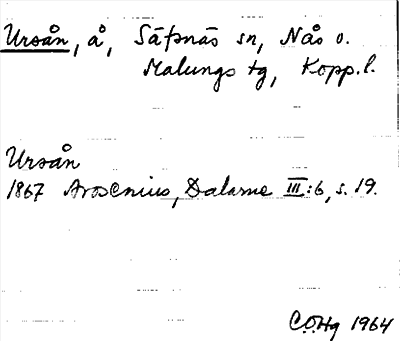 Ursån, å, Säfsnäs sn, Nås o.
Malungs tg, Kopp.l.
Ursån
1867 Arosenius, Dalarne III:6, s. 19.
C.O.Hg 1964